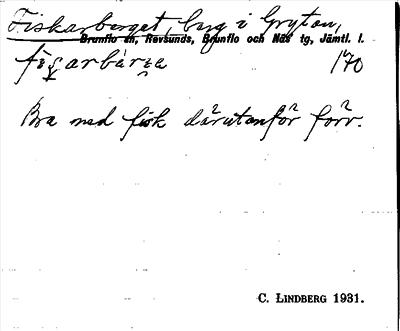 Fiskarberget, berg i Gryton,
Brunflo sn, Revsunds, Brunflo och Näs tg, Jämtl. l.
170
Bra med fisk därutanför förr.
C. LINDBERG 1931.